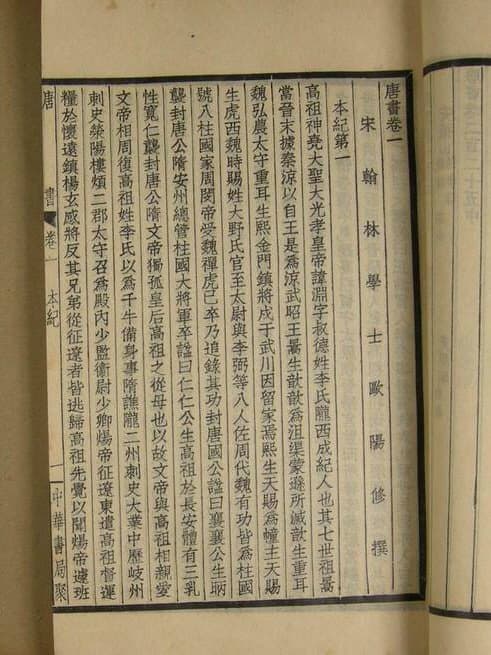 唐書卷一
宋翰林學士歐陽修撰
本紀第一
高祖神堯大聖大光孝皇帝諱淵字叔德姓李氏隴西成紀人也其七世祖暠
當晉末據秦涼以自王是為涼武昭王暠生歆歆為沮渠蒙遜所滅歆生重耳
魏弘農太守重耳生熙金門鎮將戍于武川因留家焉熙生天賜為幢主天賜
生虎西魏時賜姓大野氏官至太尉與李弼等八人佐周代魏有功皆為柱國
號八柱國家周閔帝受魏禪虎已卒乃追錄其功封唐國公諡曰襄襄公生昞
襲封唐公隋安州總管柱國大將軍卒諡曰仁仁公生高祖於長安體有三乳
性寬仁襲封唐公隋文帝獨孤皇后高祖之從母也以故文帝與高祖相親愛
文帝相周復高祖姓李氏以為千牛備身事隋譙隴二州刺史大業中歷岐州
刺史滎陽樓煩二郡太守召為殿內少監衞尉少卿煬帝征遼東遣高祖督運
糧於懷遠鎮楊玄感將反其兄弟從征遼者皆逃歸高祖先覺以聞煬帝遽班
唐書 卷一 本紀 一 中華書局聚